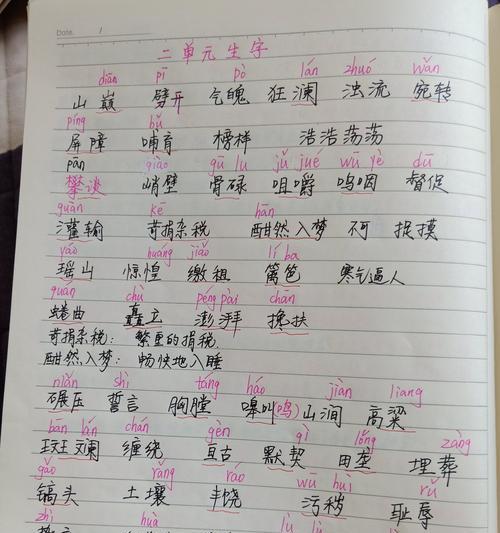 Date. 1
二单元生字
diān pī pò lán zhuó wǎn
山巅 劈开 气魄 狂澜 浊流 宛转
píng bǔ
屏障 哺育 榜样 浩浩荡荡
pān qiào gū lu jǔ jué wū yè dū
攀谈 峭壁 骨碌 咀嚼 呜咽 督促
guàn kē hān
灌输 苛捐杂税 酣然入梦 不可 捉摸
yáo huáng jiǎo lí ba
瑶山 惊惶 缴租 篱笆 寒气逼人
quán chù péng pài chān
蜷曲 矗立 澎湃 搀扶
苛捐杂税: 繁重的捐税
酣然入梦: 畅快地入睡
niǎn shì táng háo jiàn liang
碾压 誓言 胸膛 嗥叫(鸣) 山涧 高粱
ban lán chán gèn qì lǒng zàng
斑斓 缠绕 亘古 默契 田垄 埋葬
gǎo rǎng ráo wū huì rǔ
镐头 土壤 丰饶 污秽 耻辱
zhì huà lù lù